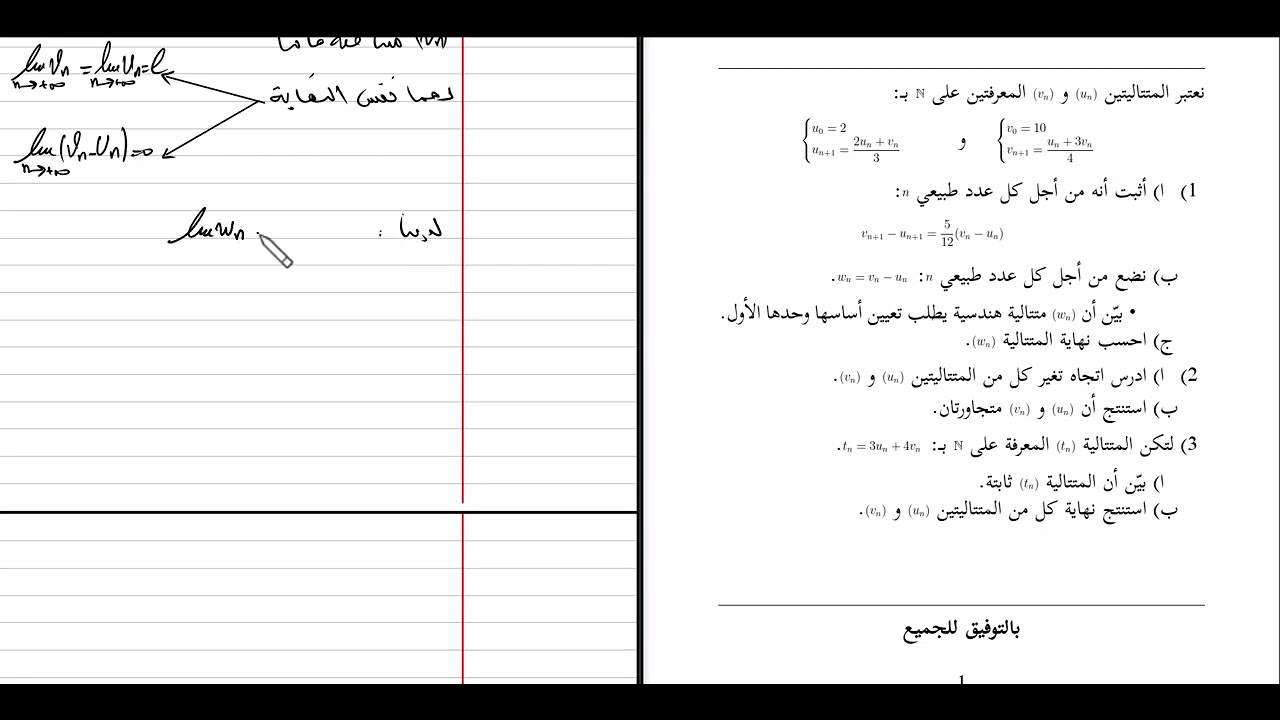 نعتبر المتتاليتين (u_n) و (v_n) المعرفتين على ℕ بـ:
{ v_0 = 10 , v_{n+1} = \frac{u_n + 3v_n}{4} و { u_0 = 2 , u_{n+1} = \frac{2u_n + v_n}{3}
1) ا) أثبت أنه من أجل كل عدد طبيعي n:
v_{n+1} − u_{n+1} = \frac{5}{12}(v_n − u_n)
ب) نضع من أجل كل عدد طبيعي n: w_n = v_n − u_n.
• بيّن أن (w_n) متتالية هندسية يطلب تعيين أساسها وحدها الأول.
ج) احسب نهاية المتتالية (w_n).
2) ا) ادرس اتجاه تغير كل من المتتاليتين (u_n) و (v_n).
ب) استنتج أن (u_n) و (v_n) متجاورتان.
3) لتكن المتتالية (t_n) المعرفة على ℕ بـ: t_n = 3u_n + 4v_n.
ا) بيّن أن المتتالية (t_n) ثابتة.
ب) استنتج نهاية كل من المتتاليتين (u_n) و (v_n).
بالتوفيق للجميع
1
لهما نفس النهاية
lim_{n→+∞} V_n = lim_{n→+∞} U_n = l
lim_{n→+∞} (V_n − U_n) = 0
لدينا : lim w_n